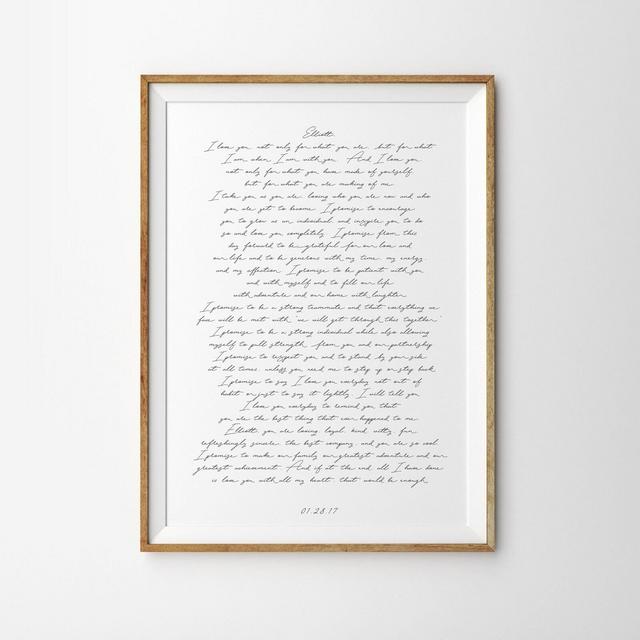 Elliott,
I love you not only for what you are, but for what
I am when I am with you. And I love you
not only for what you have made of yourself,
but for what you are making of me.
I take you as you are, loving who you are now and who
you are yet to become. I promise to encourage
you to grow as an individual and inspire you to do
so and love you completely. I promise from this
day forward to be grateful for our love and
our life and to be generous with my time, my energy,
and my affection. I promise to be patient with you
and with myself and to fill our life
with adventure and our home with laughter.
I promise to be a strong teammate and that everything we
face will be met with 'we will get through this together.'
I promise to be a strong individual while also allowing
myself to pull strength from you and our partnership.
I promise to respect you and to stand by your side
at all times, unless you need me to step up or step back.
I promise to say I love you everyday not out of
habit or just to say it lightly, I will tell you
I love you everyday to remind you that
you are the best thing that ever happened to me.
Elliott, you are loving, loyal, kind, witty, fun,
refreshingly sincere, the best company, and you are so cool.
I promise to make our family our greatest adventure and our
greatest achievement. And if at the end all I have done
is love you with all my heart, that would be enough.
01.28.17